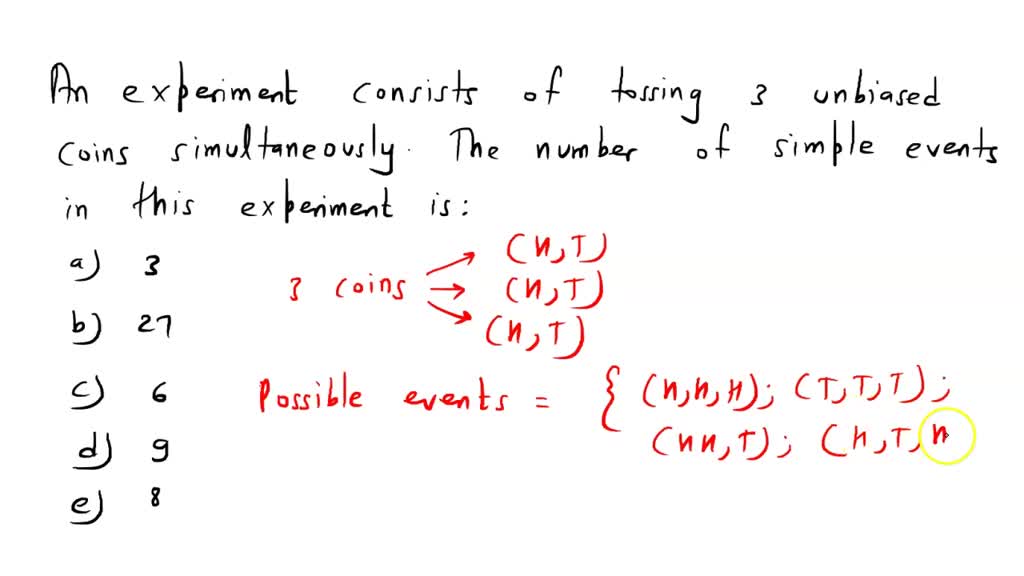 An experiment consists of tossing 3 unbiased
coins simultaneously. The number of simple events
in this experiment is:
a) 3
b) 27
c) 6
d) 9
e) 8
3 coins
(H,T)
(H,T)
(H,T)
Possible events = { (H,H,H); (T,T,T);
(HH,T); (H,T,H